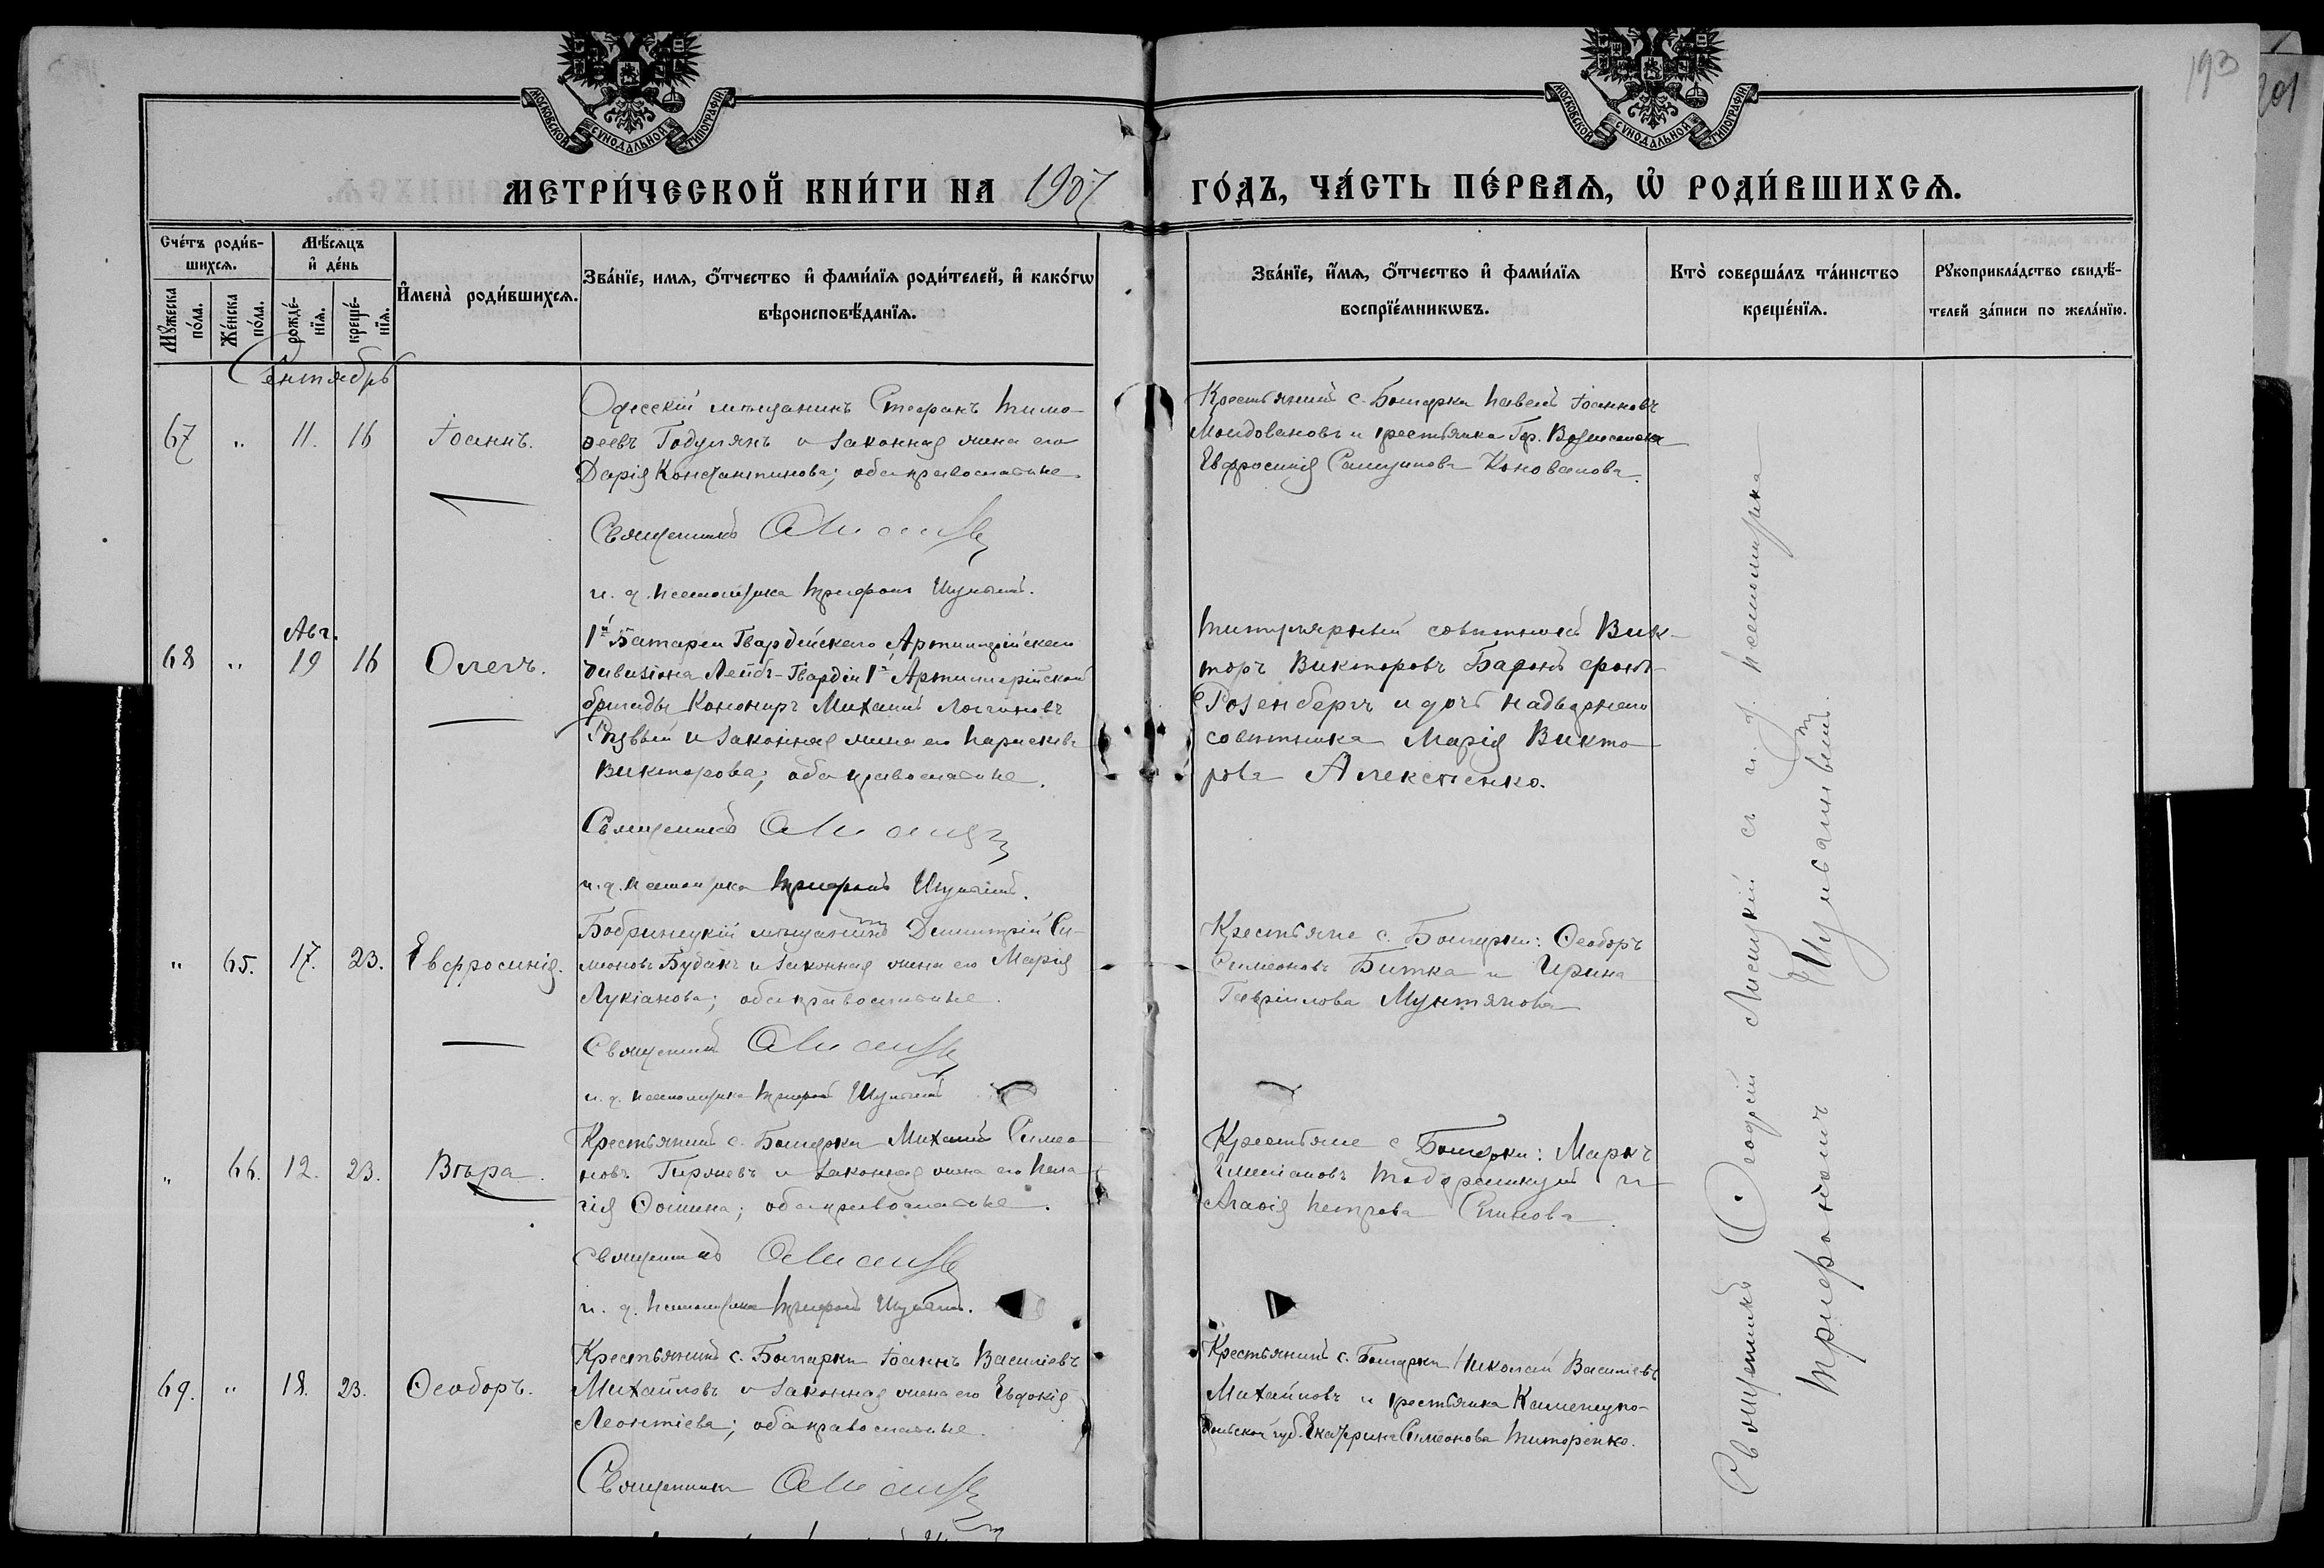 193
201
МОСКОВСКОЙ СѴНОДАЛЬНОЙ ТИПОГРАФІИ
МОСКОВСКОЙ СѴНОДАЛЬНОЙ ТИПОГРАФІИ
МЕТРИ́ЧЕСКОЙ КНИ́ГИ НА 1907
ГО́ДЪ, ЧА́СТЬ ПЕ́РВАѦ, Ѡ҆ РОДИ́ВШИХСѦ.
Сче́тъ роди́в-
шихсѧ.
Мꙋ́жеска по́ла.
Же́нска по́ла.
Мѣ́сѧцъ
и҆ де́нь
рожде́-
нїѧ.
креще́-
нїѧ.
И҆мена̀ роди́вшихсѧ.
Зва́нїе, имѧ, ѻ҆́тчество и҆ фами́лїѧ роди́телей, и҆ како́гѡ
вѣроисповѣ́данїѧ.
Зва́нїе, и҆́мѧ, ѻ҆́тчество и҆ фами́лїѧ
воспрїе́мникѡвъ.
Кто̀ соверша́лъ та́инство
креще́нїѧ.
Рꙋкоприкла́дство свидѣ́-
телей за́писи по жела́нїю.
Сентябрь
67 " 11. 16 Іоаннъ.
Одесскій мѣщанинъ Стефанъ Тимо-
ѳеевъ Годулянъ и законная жена его
Дарія Константинова; оба православные.
Священникъ
и. д. псаломщика Трифонъ
Крестьянинъ с. Болгарки Павелъ Іоанновъ
Молдовановъ и крестьянка Гор. Вознесенска
Евфросинія Самуилова Коновалова.
Авг.
68 " 19 16 Олегъ.
1й Батареи Гвардейскаго Артиллерійскаго
дивизіона Лейбъ-Гвардіи 1й Артиллерійской
бригады Канониръ Михаилъ Логиновъ
и законная жена его Параскева
Викторова; оба православные.
Священникъ
и. д. псаломщика Трифонъ
Титулярный совѣтникъ Вик-
торъ Викторовъ Баронъ фонъ-
Розенбергъ и дочь надворнаго
совѣтника Марія Викто-
рова Алексѣенко.
" 65. 17. 23. Евфросинія.
Бобринецкій мѣщанинъ Димитрій Си-
меоновъ Будакъ и законная жена его Марія
Лукіанова; оба православные.
Священникъ
и. д. псаломщика Трифонъ
Крестьяне с. Болгарки: Ѳеодоръ
Симеоновъ Битка и Ирина
Гавріилова Мунтянова
" 66. 12. 23. Вѣра.
Крестьянинъ с. Болгарки Михаилъ Симео-
новъ и законная жена его Пела-
гія Ѳомина; оба православные.
Священникъ
и. д. псаломщика Трифонъ
Крестьяне с Болгарки: Маркъ
и
Петрова
69. " 18. 23. Ѳеодоръ.
Крестьянинъ с. Болгарки Іоаннъ Василіевъ
Михайловъ и законная жена его Евдокія
Леонтіева; оба православные.
Священникъ
Крестьянинъ с. Болгарки Николай Василіевъ
Михайловъ и крестьянка Каменецъ-по-
дольской губ. Екатерина Симеонова Титоренко.
Священникъ Ѳеодосій Лисецкій съ и. д. псаломщика
Трифономъ